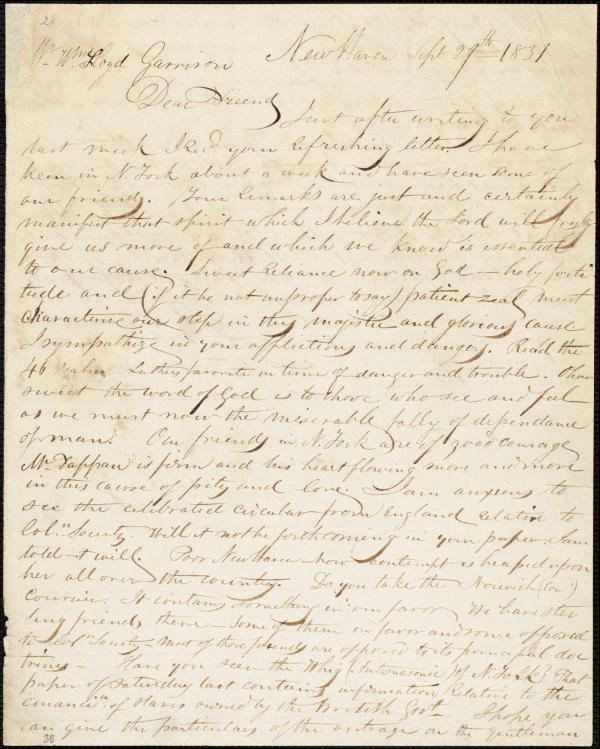 28
Mr. Wm. Lloyd Garrison New Haven Sept 29th 1831
Dear Friend
Just after writing to you
last week I recd your refreshing letter. I have
been in N. York about a week and have seen some of
our friends. Your remarks are just and certainly
manifest that spirit which I believe the Lord will
give us more of and which we know is essential
to our cause. Sweet reliance now on God — holy forti
tude and (if it be not improper to say) patient zeal must
characterize our step in this majestic and glorious cause
I sympathize in your afflictions and dangers. Read the
46 Psalm Luthers favorite in time of danger and trouble. O how
sweet the word of God is to those, who see and feel
as we must now the miserable folly of dependance
of man. Our friends in N. York are of good courage
Mr. Tappan is firm and his heart flowing more and more
in this cause of pity and love. I am anxious to
see the celebrated circular from England relative to
Coln Society. Will it not be forthcoming in your paper. I am
told it will. Poor New Haven how contempt is heaped upon
her all over the country. Do you take the Norwich (Con)
Courier. It contains something in our favor. We have ster
ling friends there — Some of them in favor and some opposed
to Coln Society — most of those friends are opposed to its principal doc
trines — Have you seen the Whig (Antimasonic) of N. York? That
paper of Saturday last contains information relative to the
emancipan of slaves owned by the British Govt — I hope you
can give the particulars of the outrage on the Gentleman
38